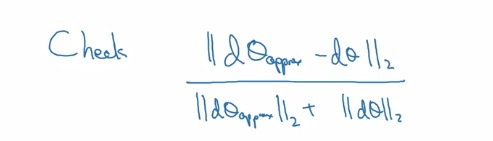 Check ||dθapprox - dθ||₂
||dθapprox||₂ + ||dθ||₂